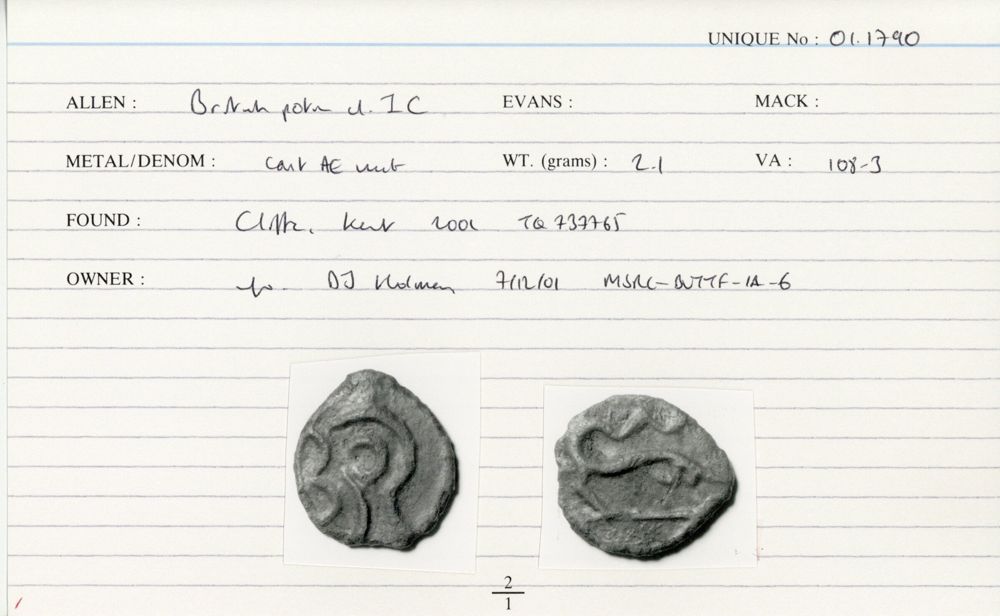 UNIQUE No : 01.1790
ALLEN : British potin cl. I C EVANS : MACK :
METAL/DENOM : Cast AE unit WT. (grams) : 2.1 VA : 108-3
FOUND : Cliffe, Kent 2001 TQ 737765
OWNER : DJ Holman 7/12/01 MSRC-BUTTF-IA-6
2
1